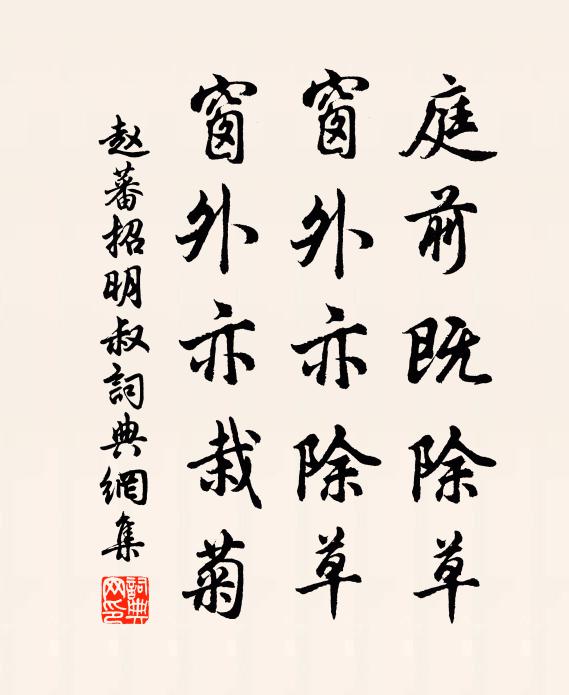 庭前既除草
窗外亦除草
窗外亦栽菊
赵蕃招明叔詞典網集
詞典网印